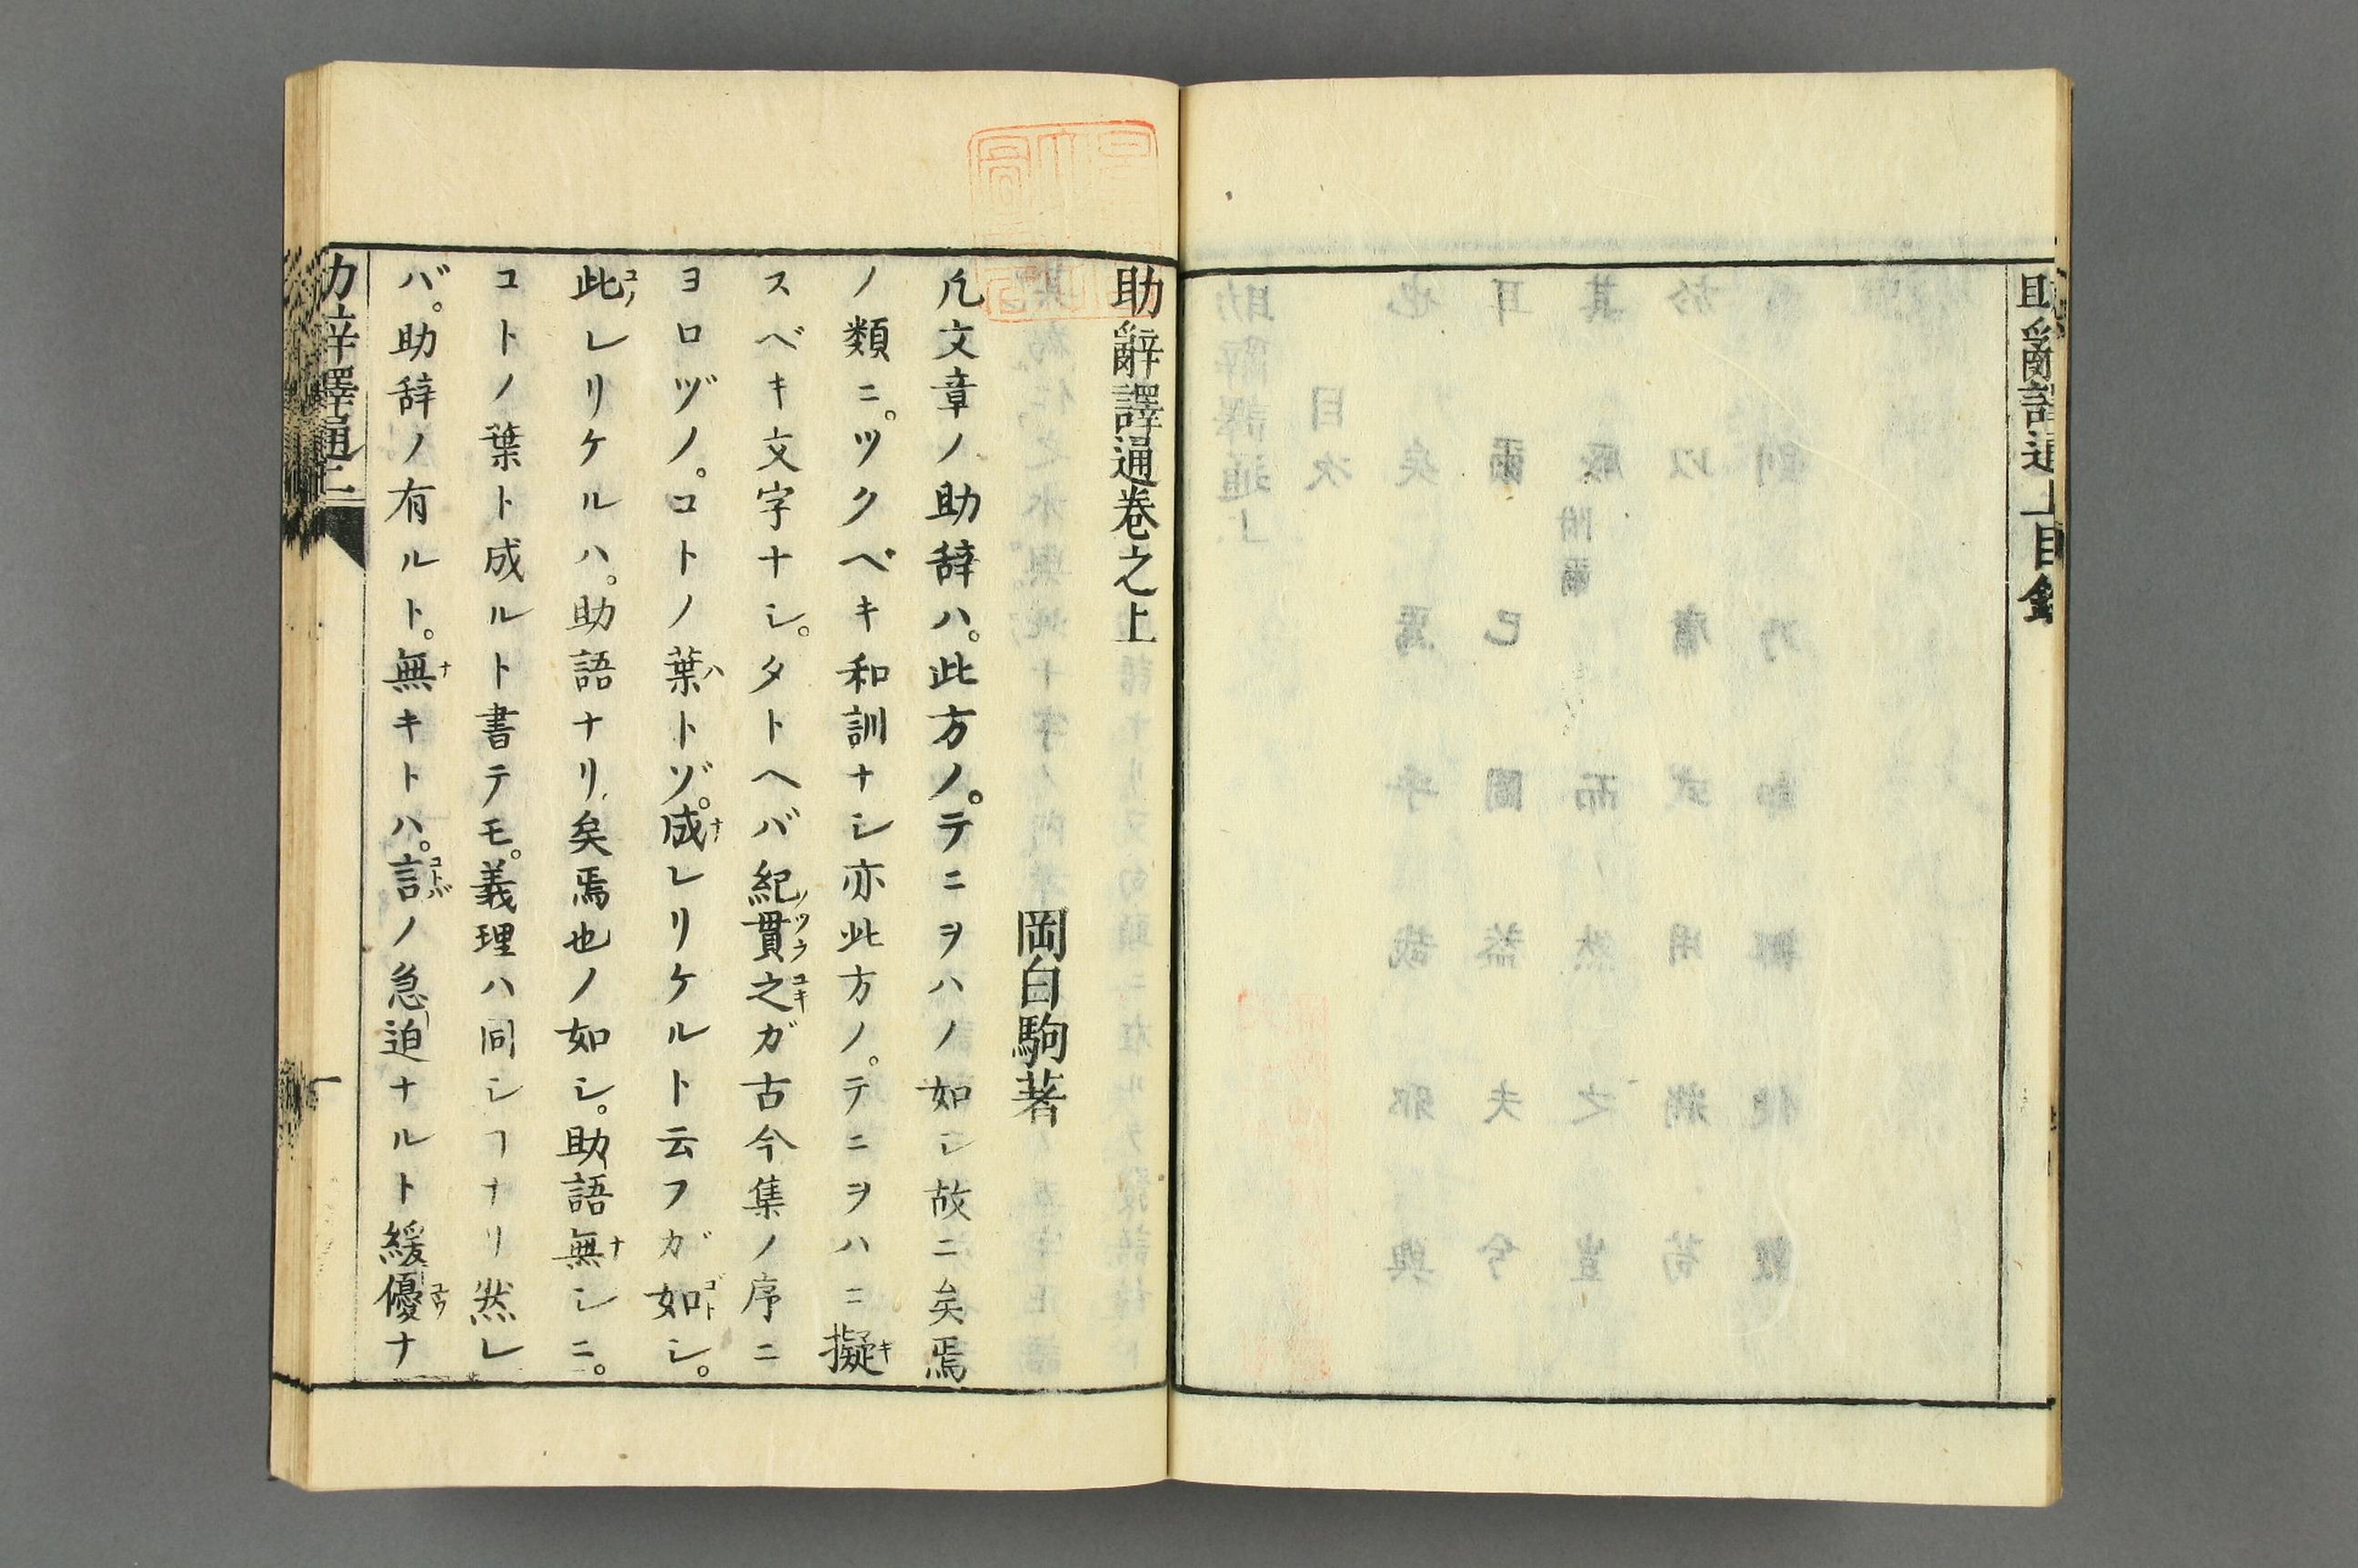 助辭譯通上目錄
助辭譯通卷之上
岡白駒著
凡文章ノ助辞ハ。此方ノ。テニヲハノ如シ故ニ矣焉
ノ類ニ。ツクベキ和訓ナシ亦此方ノ。テニヲハニ擬キ
スベキ文字ナシ。タトヘバ紀貫ノツラ之ユキガ古今集ノ序ニ
ヨロヅノ。コトノ葉ハトゾ。成ナレリケルト云フガ如ゴトシ。
此コノレリケルハ。助語ナリ矣焉也ノ如シ。助語無ナシニ。
コトノ葉ト成ルト書テモ。義理ハ同シヿナリ然レ
バ。助辞ノ有ルト。無ナキトハ。言コトバノ急迫ナルト緩優ユウナ
助辭譯通上
一